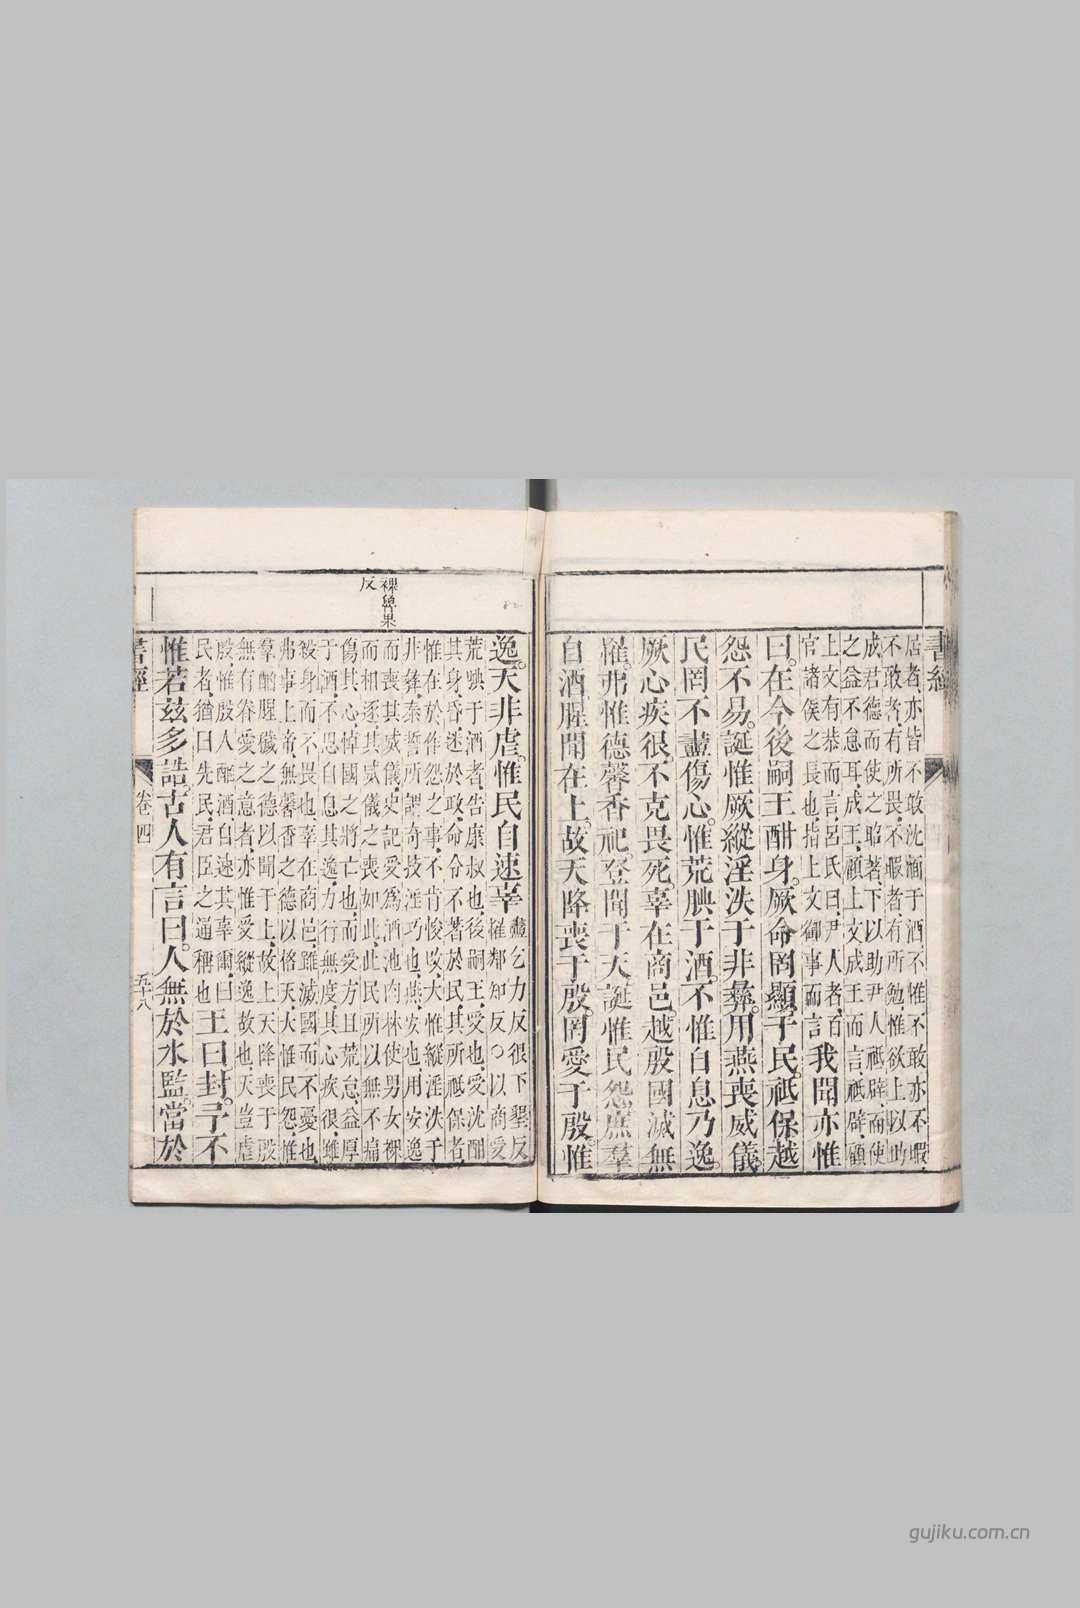 書經
居者亦皆不敢沈湎于酒不惟不敢亦不暇
不敢者有所畏不暇者有所勉惟欲上以助
成君德而使之昭著下以助尹人祗辟而使
之益不怠耳成王顧上文成王而言祗辟顧
上文有恭而言呂氏曰尹人者百
官諸侯之長也指上文御事而言我聞亦惟
曰在今後嗣王酣身厥命罔顯于民祗保越
怨不易誕惟厥縱淫泆于非彝用燕喪威儀
民罔不盡傷心惟荒腆于酒不惟自息乃逸
厥心疾很不克畏死辜在商邑越殷國滅無
罹弗惟德馨香祀登聞于天誕惟民怨庶羣
自酒腥聞在上故天降喪于殷罔愛于殷惟
裸魯果
反
逸天非虐惟民自速辜盡乞力反很下墾反
罹鄰知反○以商受
荒腆于酒者告康叔也後嗣王受也受沈酣
其身昏迷於政命令不著於民其所祗保者
惟在於作怨之事不肯悛改大惟縱淫泆于
非彝泰誓所謂奇技淫巧也燕安也用安逸
而喪其威儀史記受爲酒池肉林使男女裸
而相逐其威儀之喪如此此民所以無不痛
傷其心悼國之將亡也而受方且荒怠益厚
于酒不思自息其逸力行無度其心疾很雖
殺身而不畏也辜在商邑雖滅國而不憂也
弗事上帝無馨香之德以格天大惟民怨惟
羣酗腥穢之德以聞于上故上天降喪于殷
無有眷愛之意者亦惟受縱逸故也天豈虐
殷惟殷人酗酒自速其辜爾曰
民者猶曰先民君臣之通稱也王曰封予不
惟若茲多誥古人有言曰人無於水監當於
書經
卷四
五十八
gujiku.com.cn